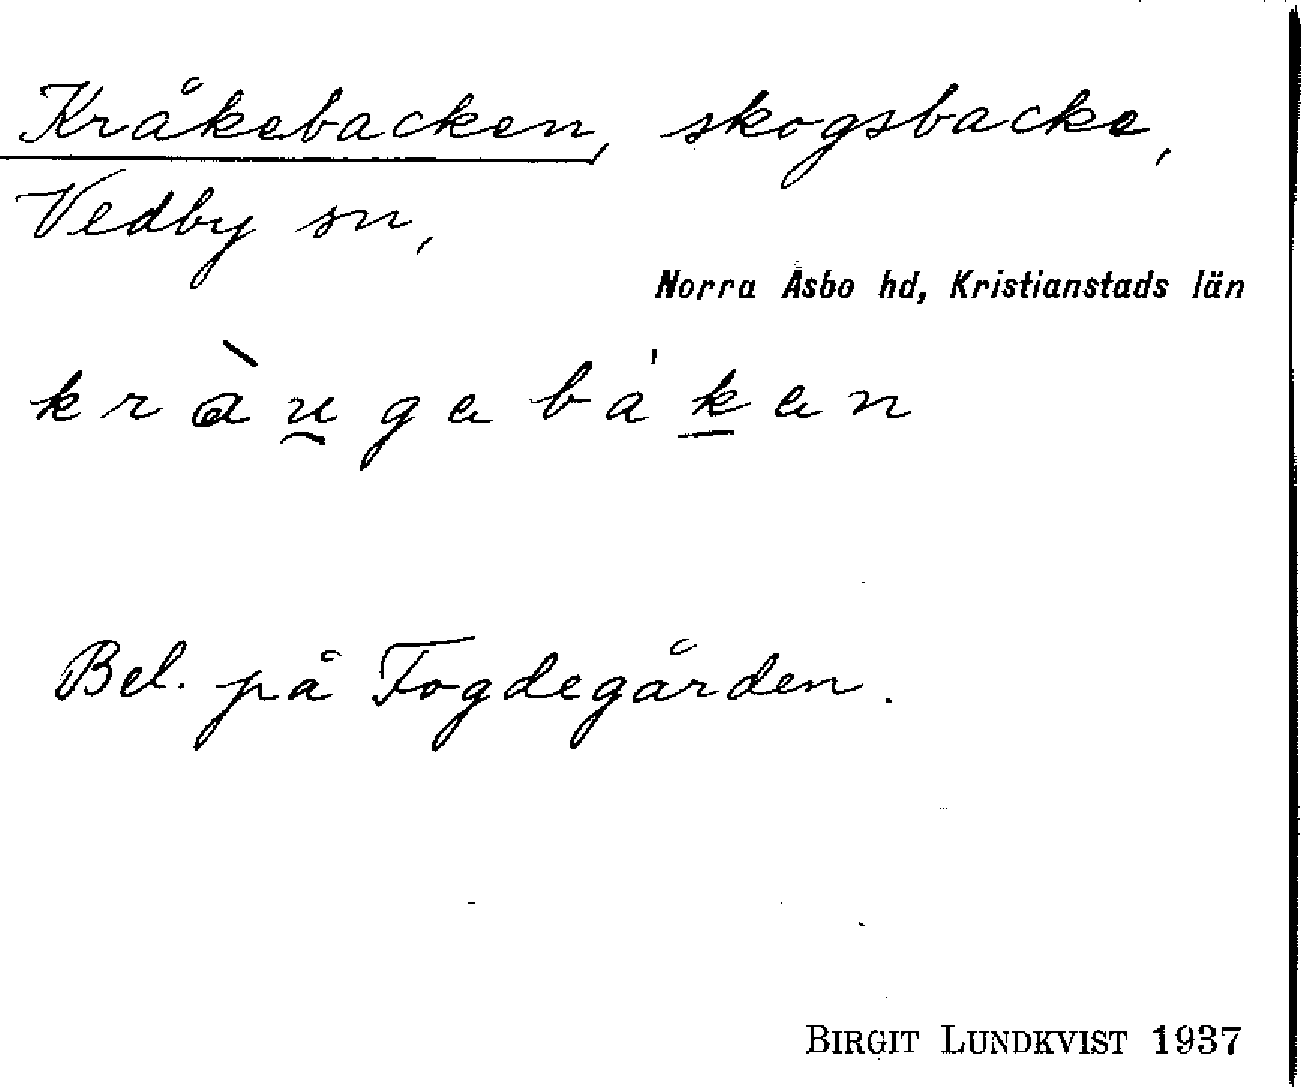 Kråkebacken, skogsbacke,
Vedby sn,
Norra Åsbo hd, Kristianstads län
kràu̯gabák̲an
Bel. på Fogdegården.
BIRGIT LUNDKVIST 1937